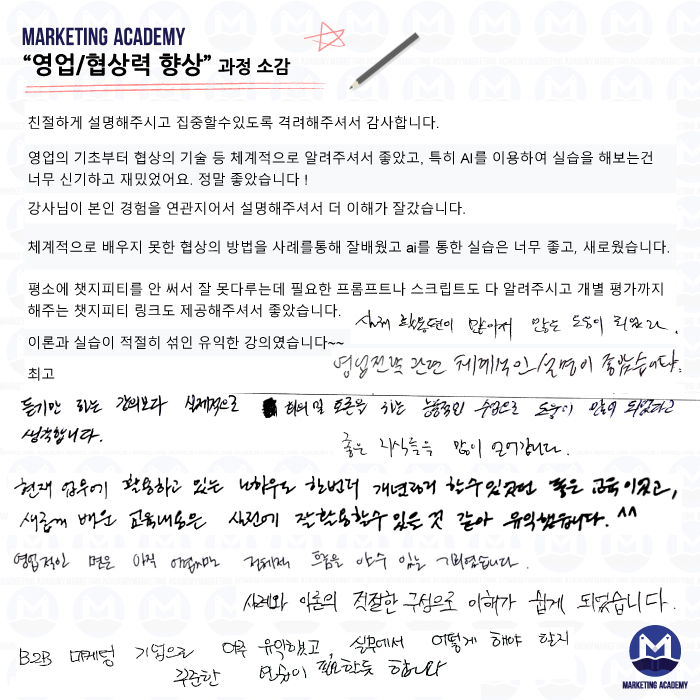 MARKETING ACADEMY
“영업/협상력 향상” 과정 소감
친절하게 설명해주시고 집중할수있도록 격려해주셔서 감사합니다.
영업의 기초부터 협상의 기술 등 체계적으로 알려주셔서 좋았고, 특히 AI를 이용하여 실습을 해보는건
너무 신기하고 재밌었어요. 정말 좋았습니다 !
강사님이 본인 경험을 연관지어서 설명해주셔서 더 이해가 잘갔습니다.
체계적으로 배우지 못한 협상의 방법을 사례를통해 잘배웠고 ai를 통한 실습은 너무 좋고, 새로웠습니다.
평소에 챗지피티를 안 써서 잘 못다루는데 필요한 프롬프트나 스크립트도 다 알려주시고 개별 평가까지
해주는 챗지피티 링크도 제공해주셔서 좋았습니다.
실제 활용면이 많아서 많은 도움이 되었다.
이론과 실습이 적절히 섞인 유익한 강의였습니다~~
영업전략 관련 체계적인 설명이 좋았습니다.
최고
듣기만 하는 강의보다 실제적으로 회의 및 토론을 하는 능동적인 수업으로 도움이 많이 되었다고
생각합니다.
좋은 지식들을 많이 얻어갑니다.
현재 업무에 활용하고 있는 노하우도 한번더 개념정리 할수있었던 좋은 교육이었고,
새롭게 배운 교육내용은 실전에 잘활용할수 있을 것 같아 유익했습니다. ^^
영업적인 면은 아직 어렵지만 전체적 흐름을 알 수 있는 기회였습니다.
사례와 이론의 적절한 구성으로 이해가 쉽게 되었습니다.
B2B 마케팅 기업으로 아주 유익했고, 실무에서 어떻게 해야 할지
꾸준한 연습이 필요한듯 합니다
MARKETING ACADEMY